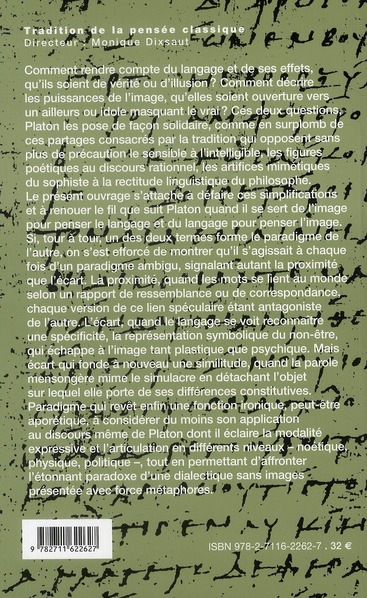 Tradition de la pensée classique
Directeur : Monique Dixsaut
Comment rendre compte du langage et de ses effets,
qu'ils soient de vérité ou d'illusion ? Comment décrire
les puissances de l'image, qu'elles soient ouverture vers
un ailleurs ou idole masquant le vrai ? Ces deux questions,
Platon les pose de façon solidaire, comme en surplomb de
ces partages consacrés par la tradition qui opposent sans
plus de précaution le sensible à l'intelligible, les figures
poétiques au discours rationnel, les artifices mimétiques
du sophiste à la rectitude linguistique du philosophe.
Le présent ouvrage s'attache à défaire ces simplifications
et à renouer le fil que suit Platon quand il se sert de l'image
pour penser le langage et du langage pour penser l'image.
Si, tour à tour, un des deux termes forme le paradigme de
l'autre, on s'est efforcé de montrer qu'il s'agissait à chaque
fois d'un paradigme ambigu, signalant autant la proximité
que l'écart. La proximité, quand les mots se lient au monde
selon un rapport de ressemblance ou de correspondance,
chaque version de ce lien spéculaire étant antagoniste
de l'autre. L'écart, quand le langage se voit reconnaître
une spécificité, la représentation symbolique du non-être,
qui échappe à l'image tant plastique que psychique. Mais
écart qui fonde à nouveau une similitude, quand la parole
mensongère mime le simulacre en détachant l'objet
sur lequel elle porte de ses différences constitutives.
Paradigme qui revêt enfin une fonction ironique, peut-être
aporétique, à considérer du moins son application
au discours même de Platon dont il éclaire la modalité
expressive et l'articulation en différents niveaux – noétique,
physique, politique –, tout en permettant d'affronter
l'étonnant paradoxe d'une dialectique sans images
présentée avec force métaphores.
9 782711 622627
ISBN 978-2-7116-2262-7 . 32 €